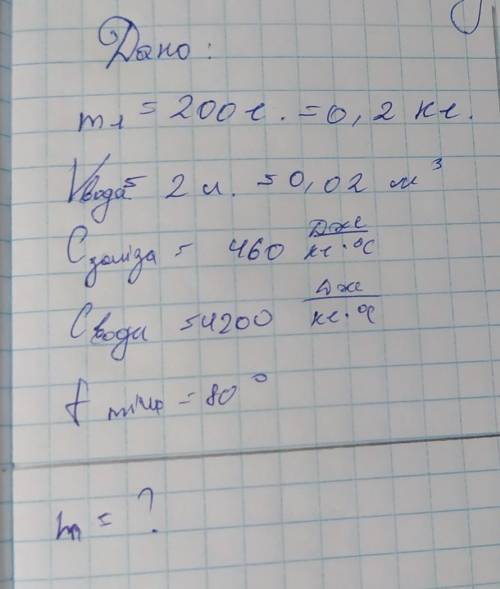 Дано:
m₁ = 200 г. = 0,2 кг.
Vвода = 2 л. = 0,02 м³
Cзаліза = 460 Дж/кг·°C
Cводи = 4200 Дж/кг·°C
t = 80°
m = ?